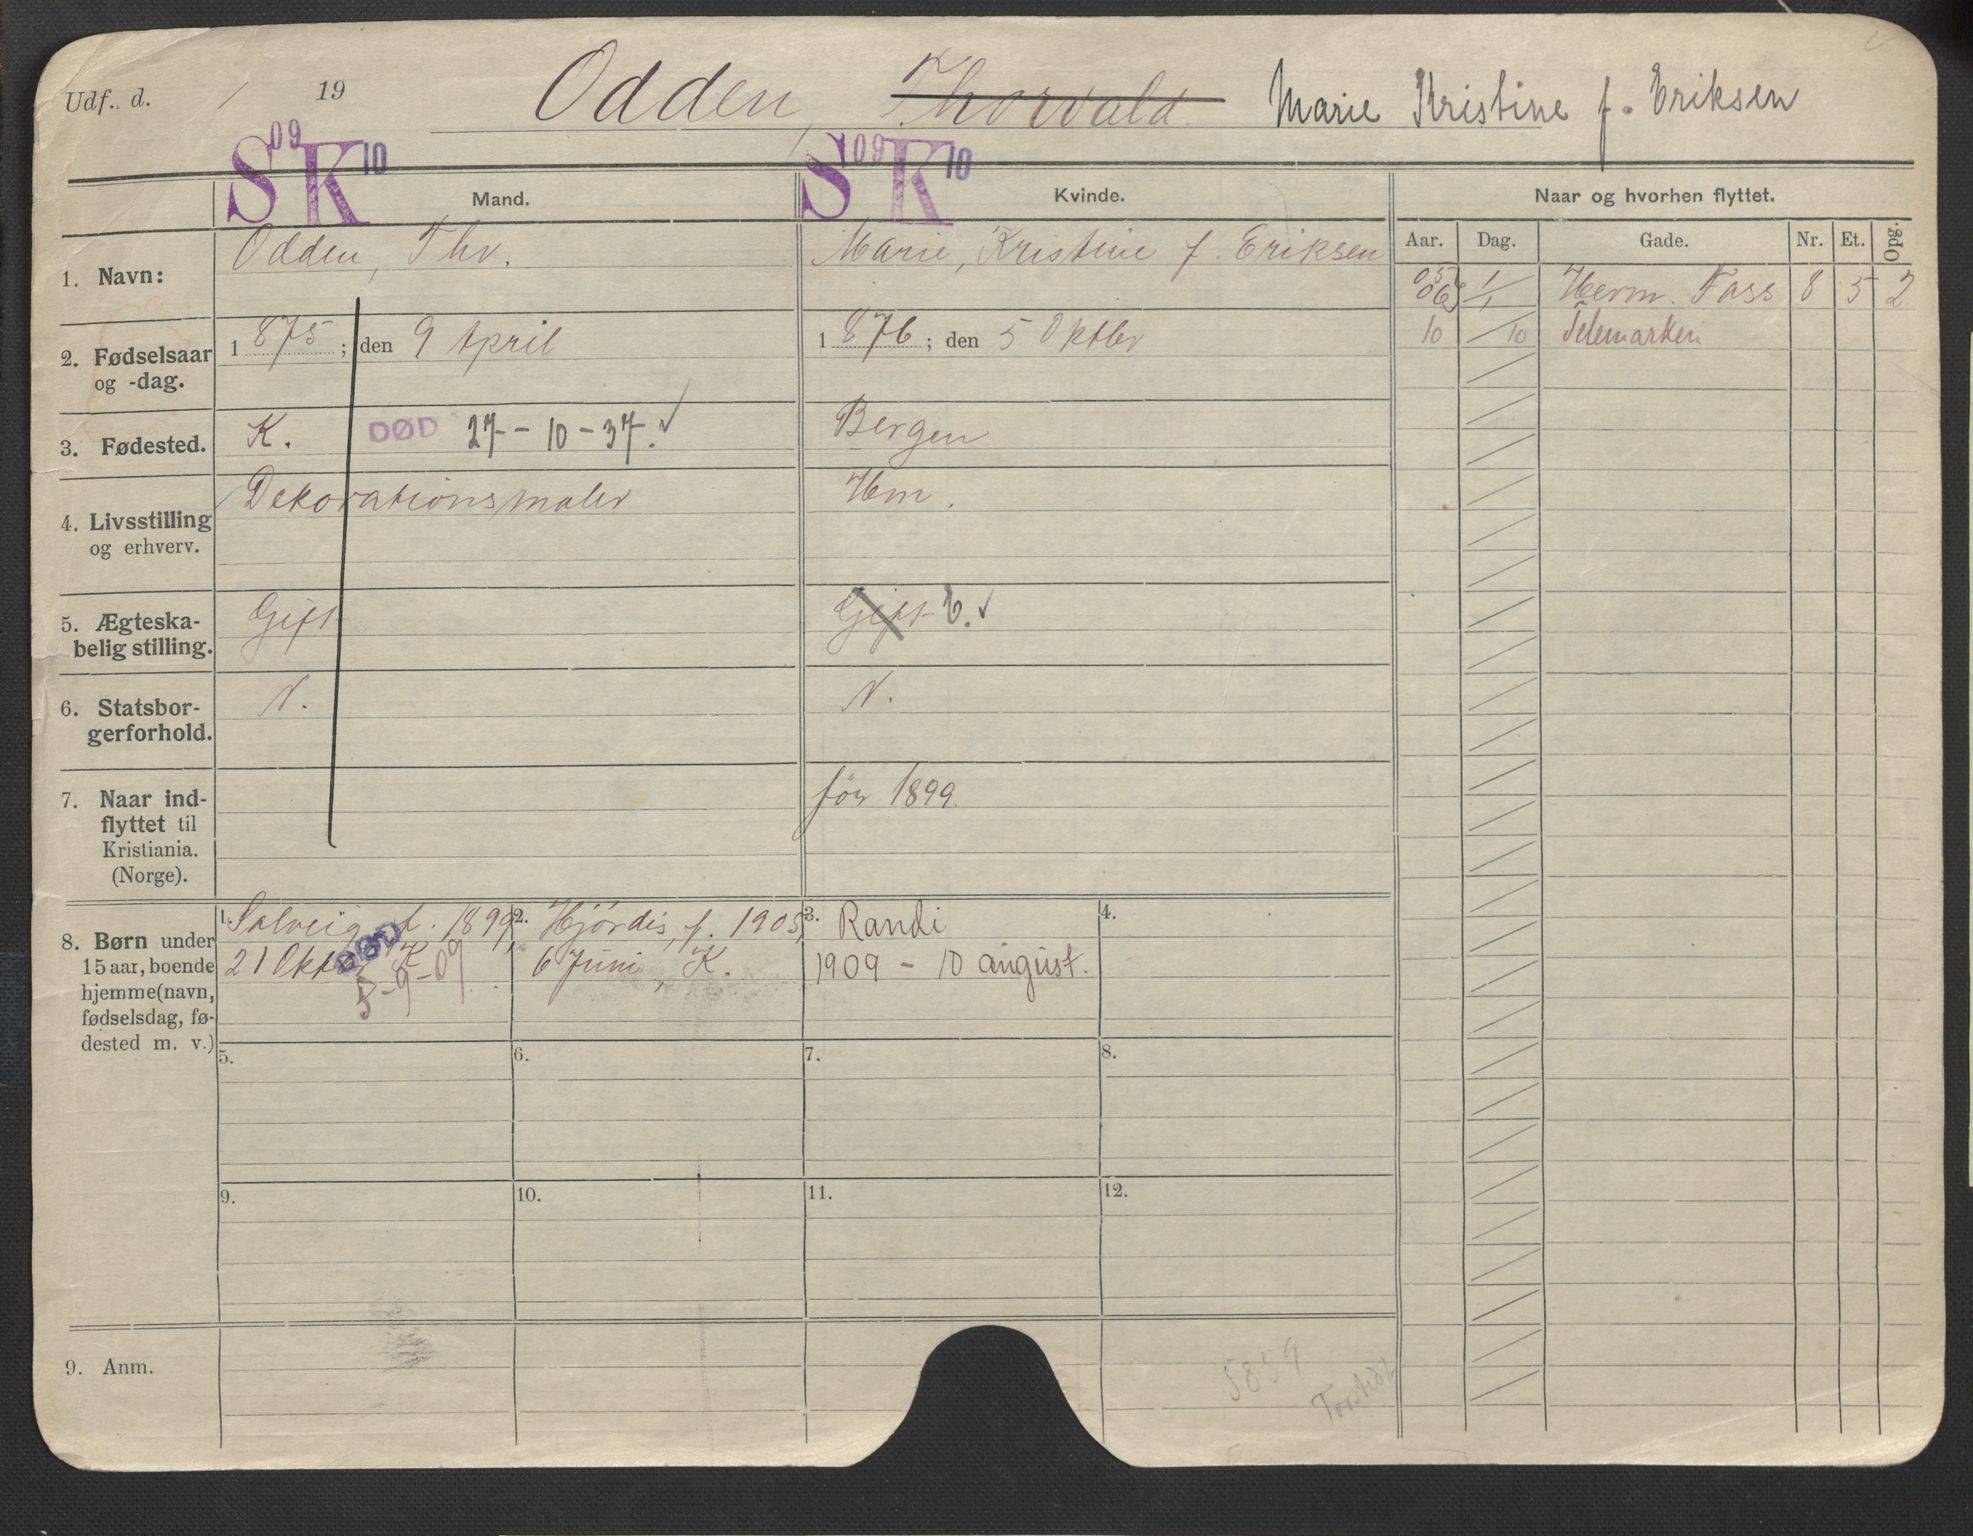 Udf. d. / 19 Odden, Thorvald Marie Kristine f. Eriksen
S 09 K 10 S 09 K 10
Mand. Kvinde. Naar og hvorhen flyttet.
Aar. Dag. Gade. Nr. Et. Opg.
1. Navn: Odden, Thv. Marie, Kristine f. Eriksen
05 06 1/1 Herm. Foss 8 5 2
10 /10 Telemarken
2. Fødselsaar og -dag. 1 875 ; den 9 April 1 876 ; den 5 Oktbr
3. Fødested. K. DØD 27-10-37. ✓ Bergen
4. Livsstilling og erhverv. Dekorationsmaler Hm.
5. Ægteska-
belig stilling. Gift Gift E. ✓
6. Statsbor-
gerforhold. N. N.
7. Naar ind-
flyttet til
Kristiania.
(Norge). før 1899.
8. Børn under
15 aar, boende
hjemme (navn,
fødselsdag, fø-
dested m. v.)
1. Solveig f. 1899,
21 Oktbr K
DØD
5-9-09
2. Hjördis, f. 1905,
6 Juni, K.
3. Randi
1909 - 10 august.
4.
5. 6. 7. 8.
9. 10. 11. 12.
9. Anm.
5859